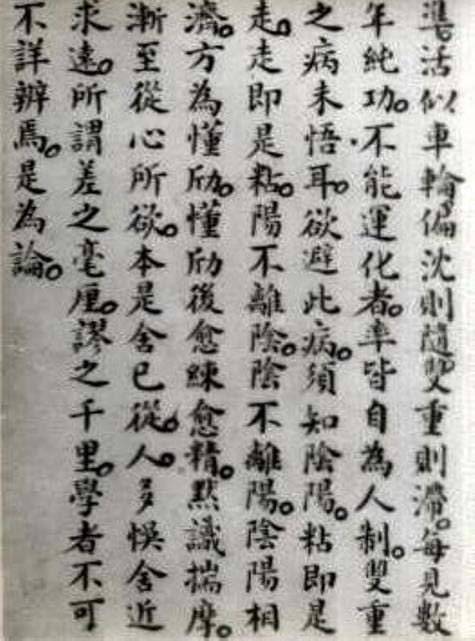 準活似車輪偏沈則隨雙重則滯。每見數
年純功。不能運化者。率皆自為人制。雙重
之病未悟耳。欲避此病。須知陰陽。粘即是
走。走即是粘。陽不離陰。陰不離陽。陰陽相
濟。方為懂劤。懂劤後愈練愈精。默識揣摩。
漸至從心所欲。本是舍己從人。多悞舍近
求遠。所謂差之毫厘。謬之千里。學者不可
不詳辨焉。是為論。